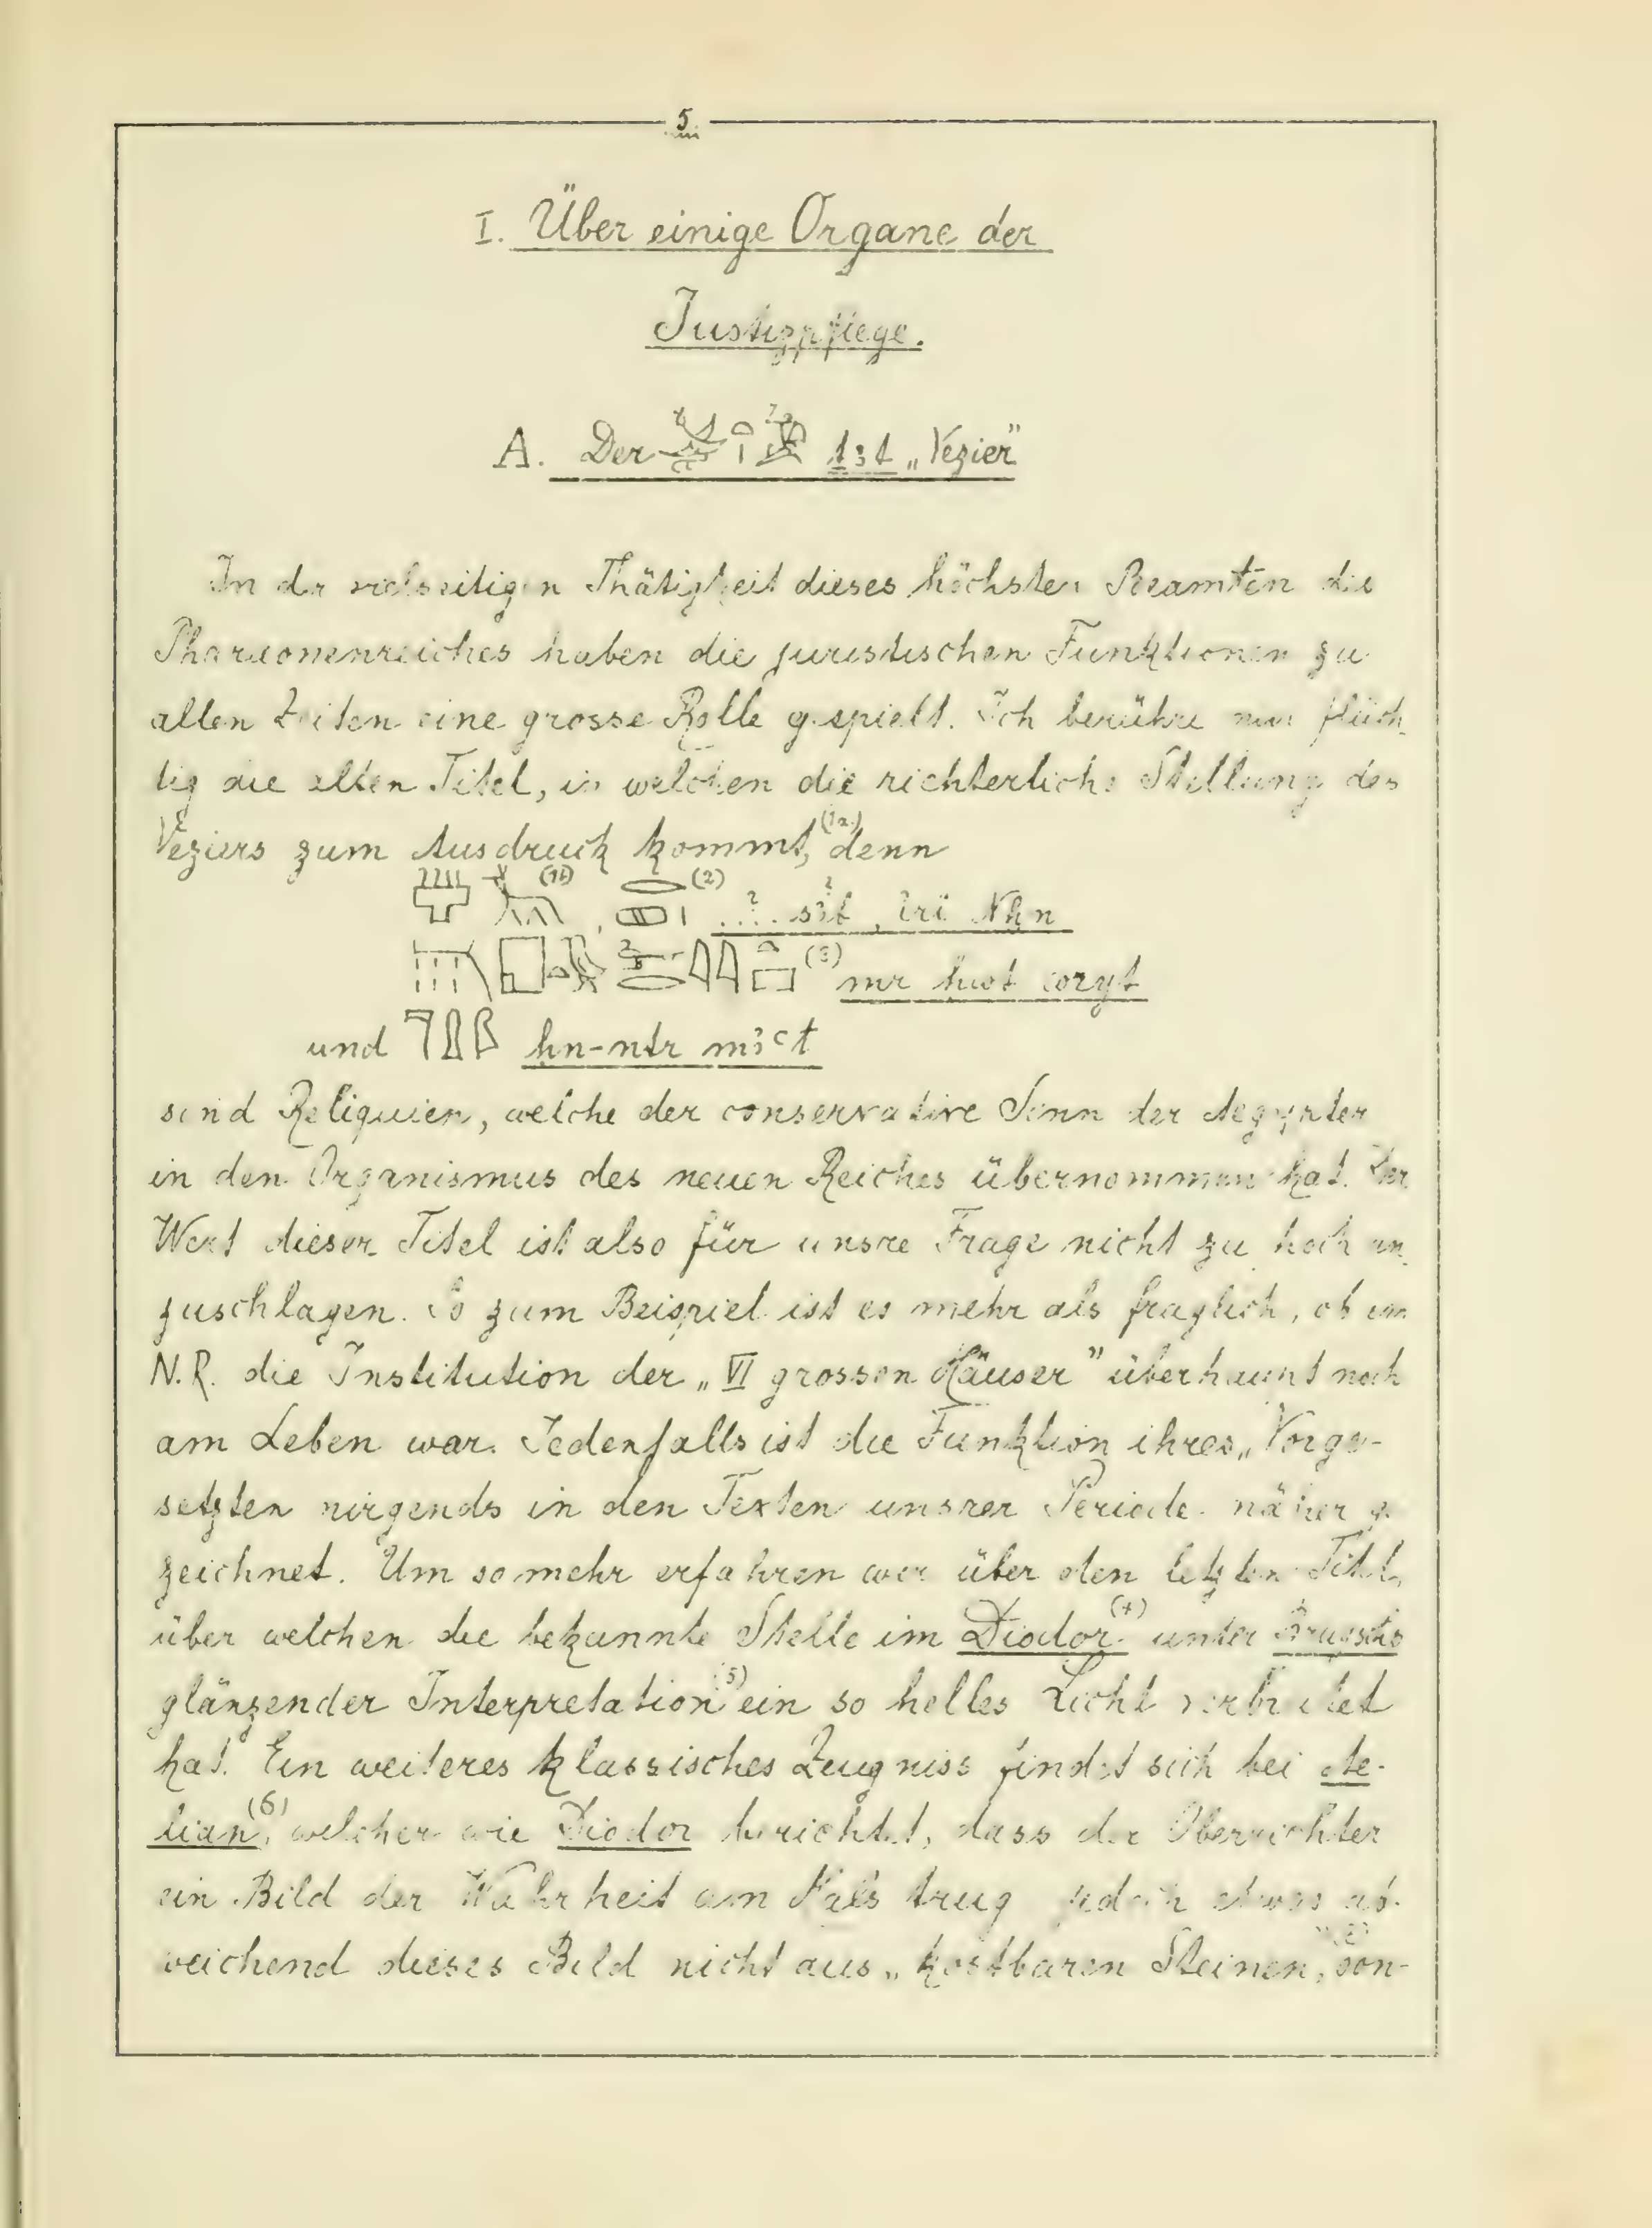 5
I. Über einige Organe der
Justizpflege.
A. Der t3t „Vezier"
In der vielseitigen Thätigkeit dieses höchsten Beamten des
Pharaonenreiches haben die juristischen Funktionen zu
allen Zeiten eine grosse Rolle gespielt. Ich berühre nur flüch-
tig die alten Titel, in welchen die richterliche Stellung des
Veziers zum Ausdruck kommt, (1a) denn
(1b) , (2) ..?.. s3b, iri Nhn
(3) mr hwt wryt
und hn-ntr m3ct
sind Reliquien, welche der conservative Sinn der Aegypter
in den Organismus des neuen Reiches übernommen hat. Der
Wert dieser Titel ist also für unsre Frage nicht zu hoch an-
zuschlagen. So zum Beispiel ist es mehr als fraglich, ob im
N.R. die Institution der „VI grossen Häuser" überhaupt noch
am Leben war. Jedenfalls ist die Funktion ihres „Vorge-
setzten nirgends in den Texten unsrer Periode näher
zeichnet. Um so mehr erfahren wir über den letzten Titel,
über welchen die bekannte Stelle im Diodor (4) unter Brugschs
glänzender Interpretation (5) ein so helles Licht verbreitet
hat. Ein weiteres klassisches Zeugniss findet sich bei Ae-
lian (6), welcher wie Diodor berichtet, dass der Oberrichter
ein Bild der Wahrheit am Hals trug jedoch etwas ab-
weichend dieses Bild nicht aus „kostbaren Steinen", son-